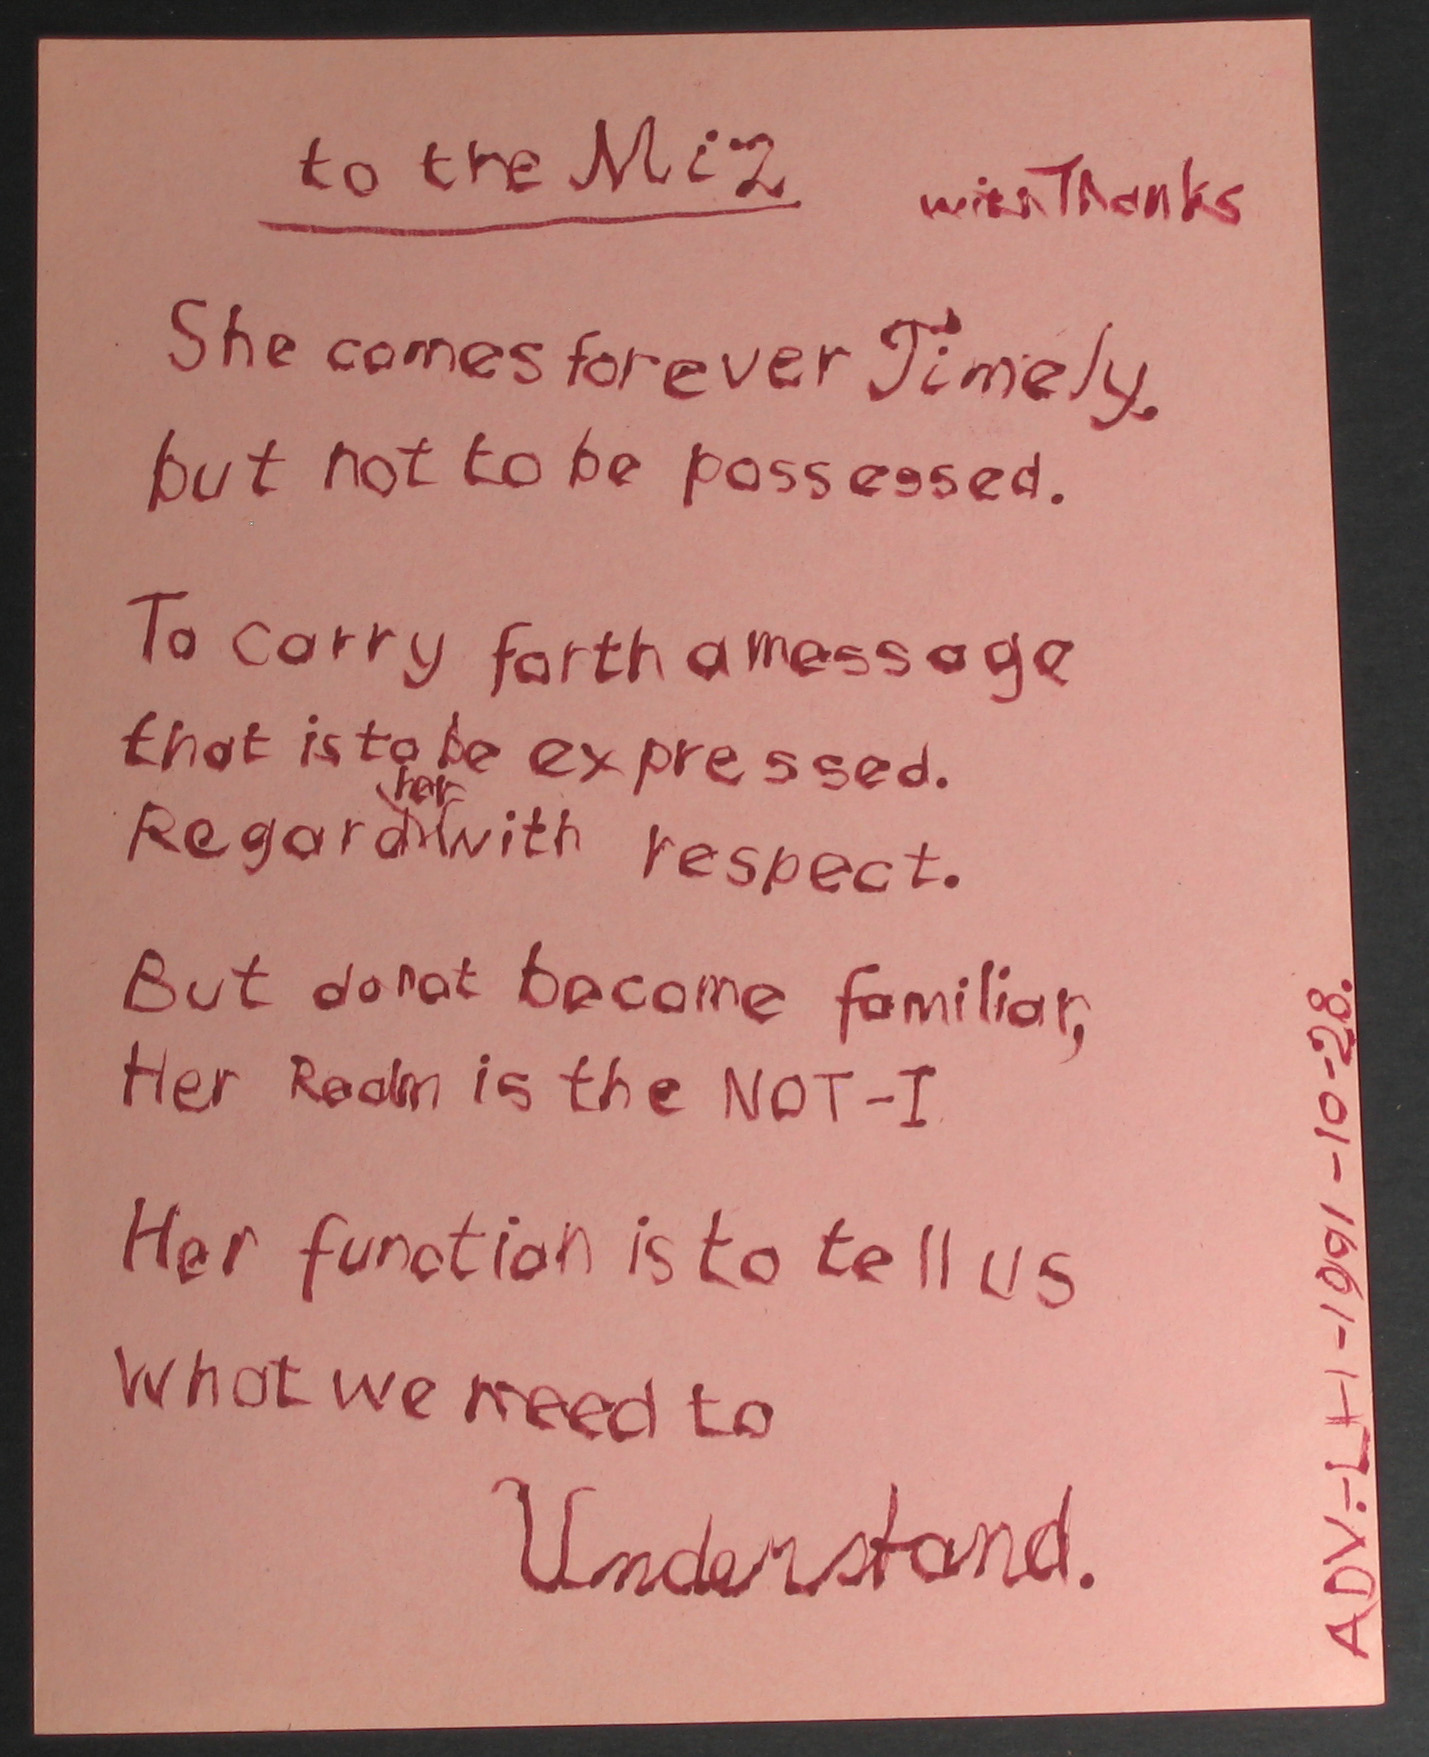 to the Miz
with Thanks
She comes forever Timely.
but not to be possessed.
To carry forth a message
that is to be expressed.
Regard her with respect.
But do not become familiar,
Her Realm is the NOT-I
Her function is to tell us
What we need to
Understand.
ADV.-LH-1991-10-28.